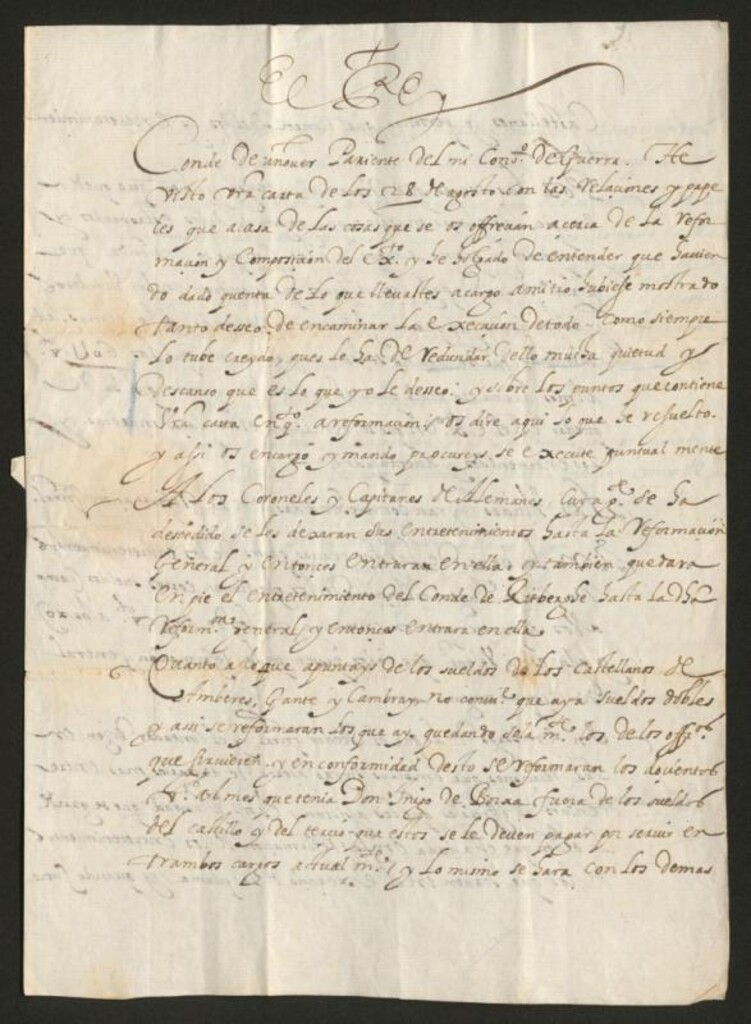 El Rey
Conde de Añover Pariente del mi Cons.º de Guerra. He
visto vra carta de los 28 de agosto con las relaciones y pape
les que acusa de las cosas que se os offrecian acerca de la refor
macion y Composicion del Ex.to y he holgado de entender que havien
do dado quenta de lo que llevastes a cargo a mi tio hubiesse mostrado
tanto desseo de encaminar la execucion de todo Como siempre
lo tube creydo, pues le ha de redundar dello mucha quietud y
Descanso que es lo que yo le desseo: y sobre los puntos que contiene
vra carta en q.to a reformacion, os dire aqui lo que he resuelto.
y assi os encargo y mando procureys se execute puntual mente
A los Coroneles y Capitanes de Alemanes, cuya g.te se ha
despedido, se les dexaran sus entretenimientos hasta la reformacion
General y entonces entraran en ella, y tambien quedara
en pie el entretenimiento del Conde de hasta la dha
reform.on general, y entonces entrara en ella.
Quanto a lo que apuntays de los sueldos de los castellanos de
Amberes, Gante y Cambray, no convi.e que aya sueldos dobles
y assi se reformaran los que ay quedando sola m.te los de los off.os
que sirvieren, y en conformidad desto se reformaran los docientos
al mes que tenia Don Inigo de Borxa fuera de los sueldos
del castillo y del tercio que estos se le deven pagar por servir en
trambos cargos actual m.te, y lo mismo se hara con los demas